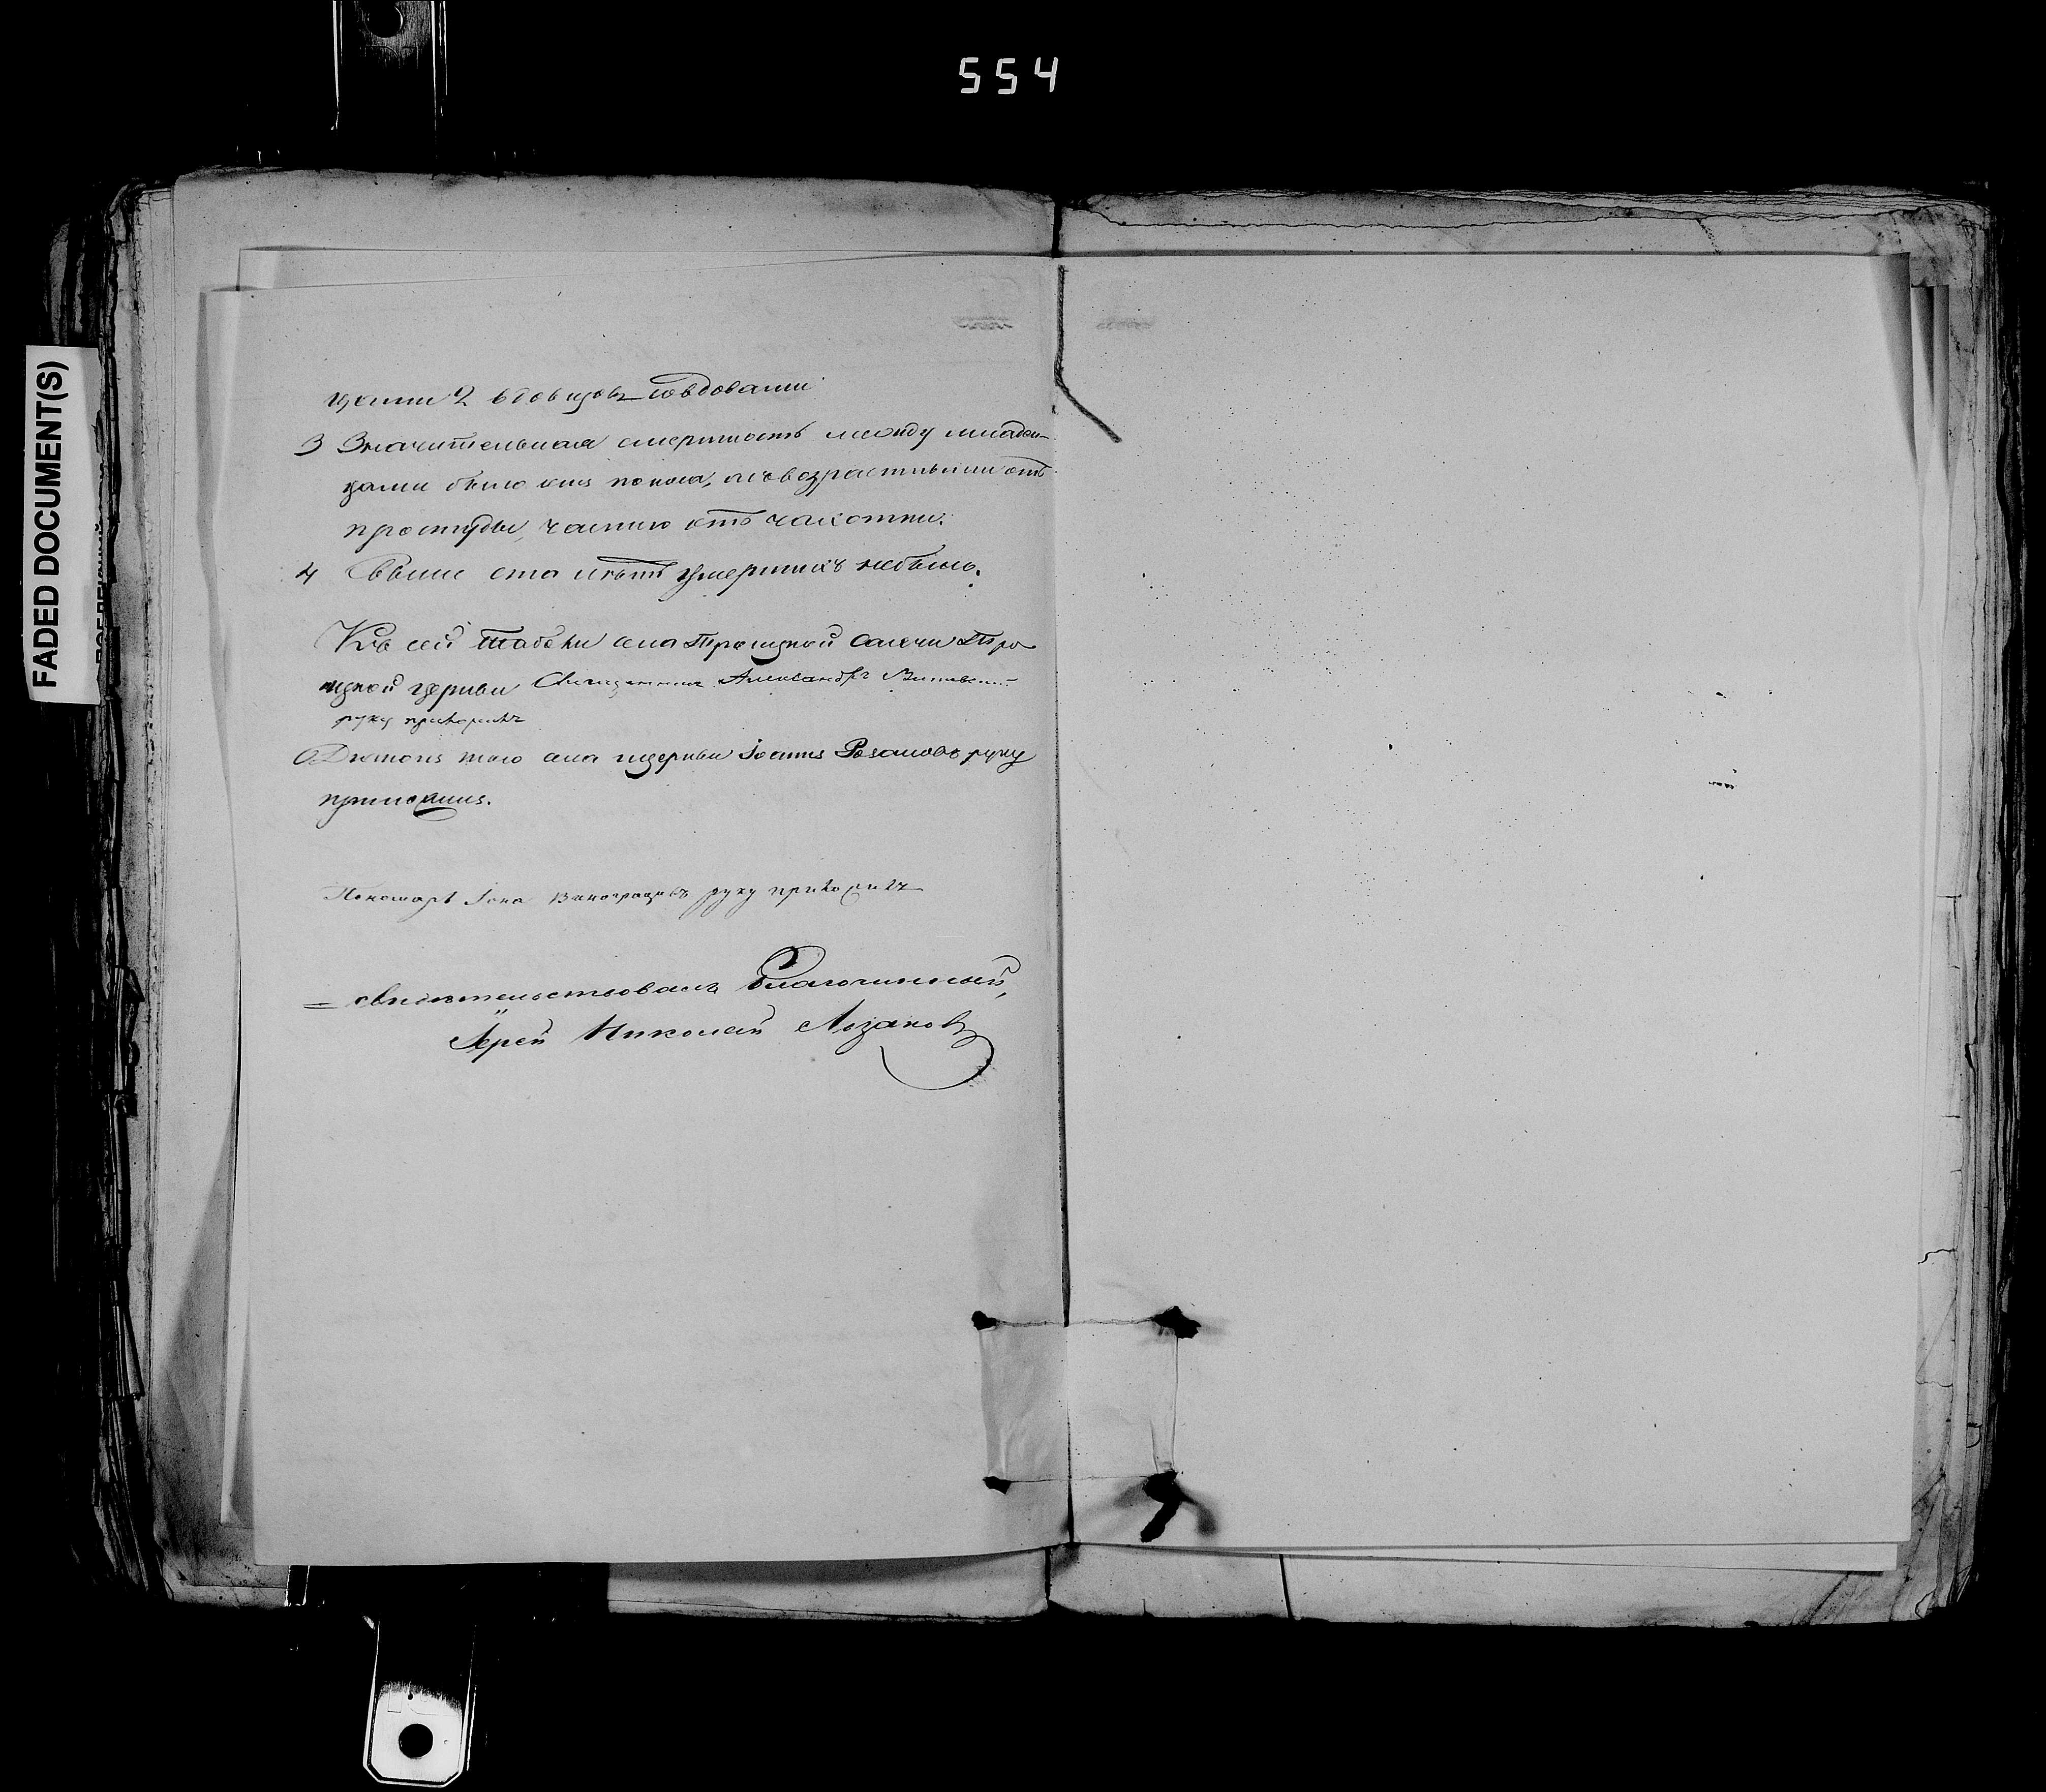 554
FADED DOCUMENT(S)
цами 2 вдовцовъ совдовами
3 Значительная смертность между младен-
цами было отъ поноса, а съвозрастными отъ
простуды, частию отъ чахотки.
4 Свыше ста лѣтъ умершихъ небыло.
Къ сей табели села Троицкой Трο
ицкой церкви Священникъ Александръ
руку приложилъ
Диаконъ того села ицеркви Іоаннъ Розановъ руку
приложилъ.
Пономарь Іона Виноградовъ руку приложилъ
= свидѣтельствовалъ Благочинный,
Іерей Николай Лозановъ